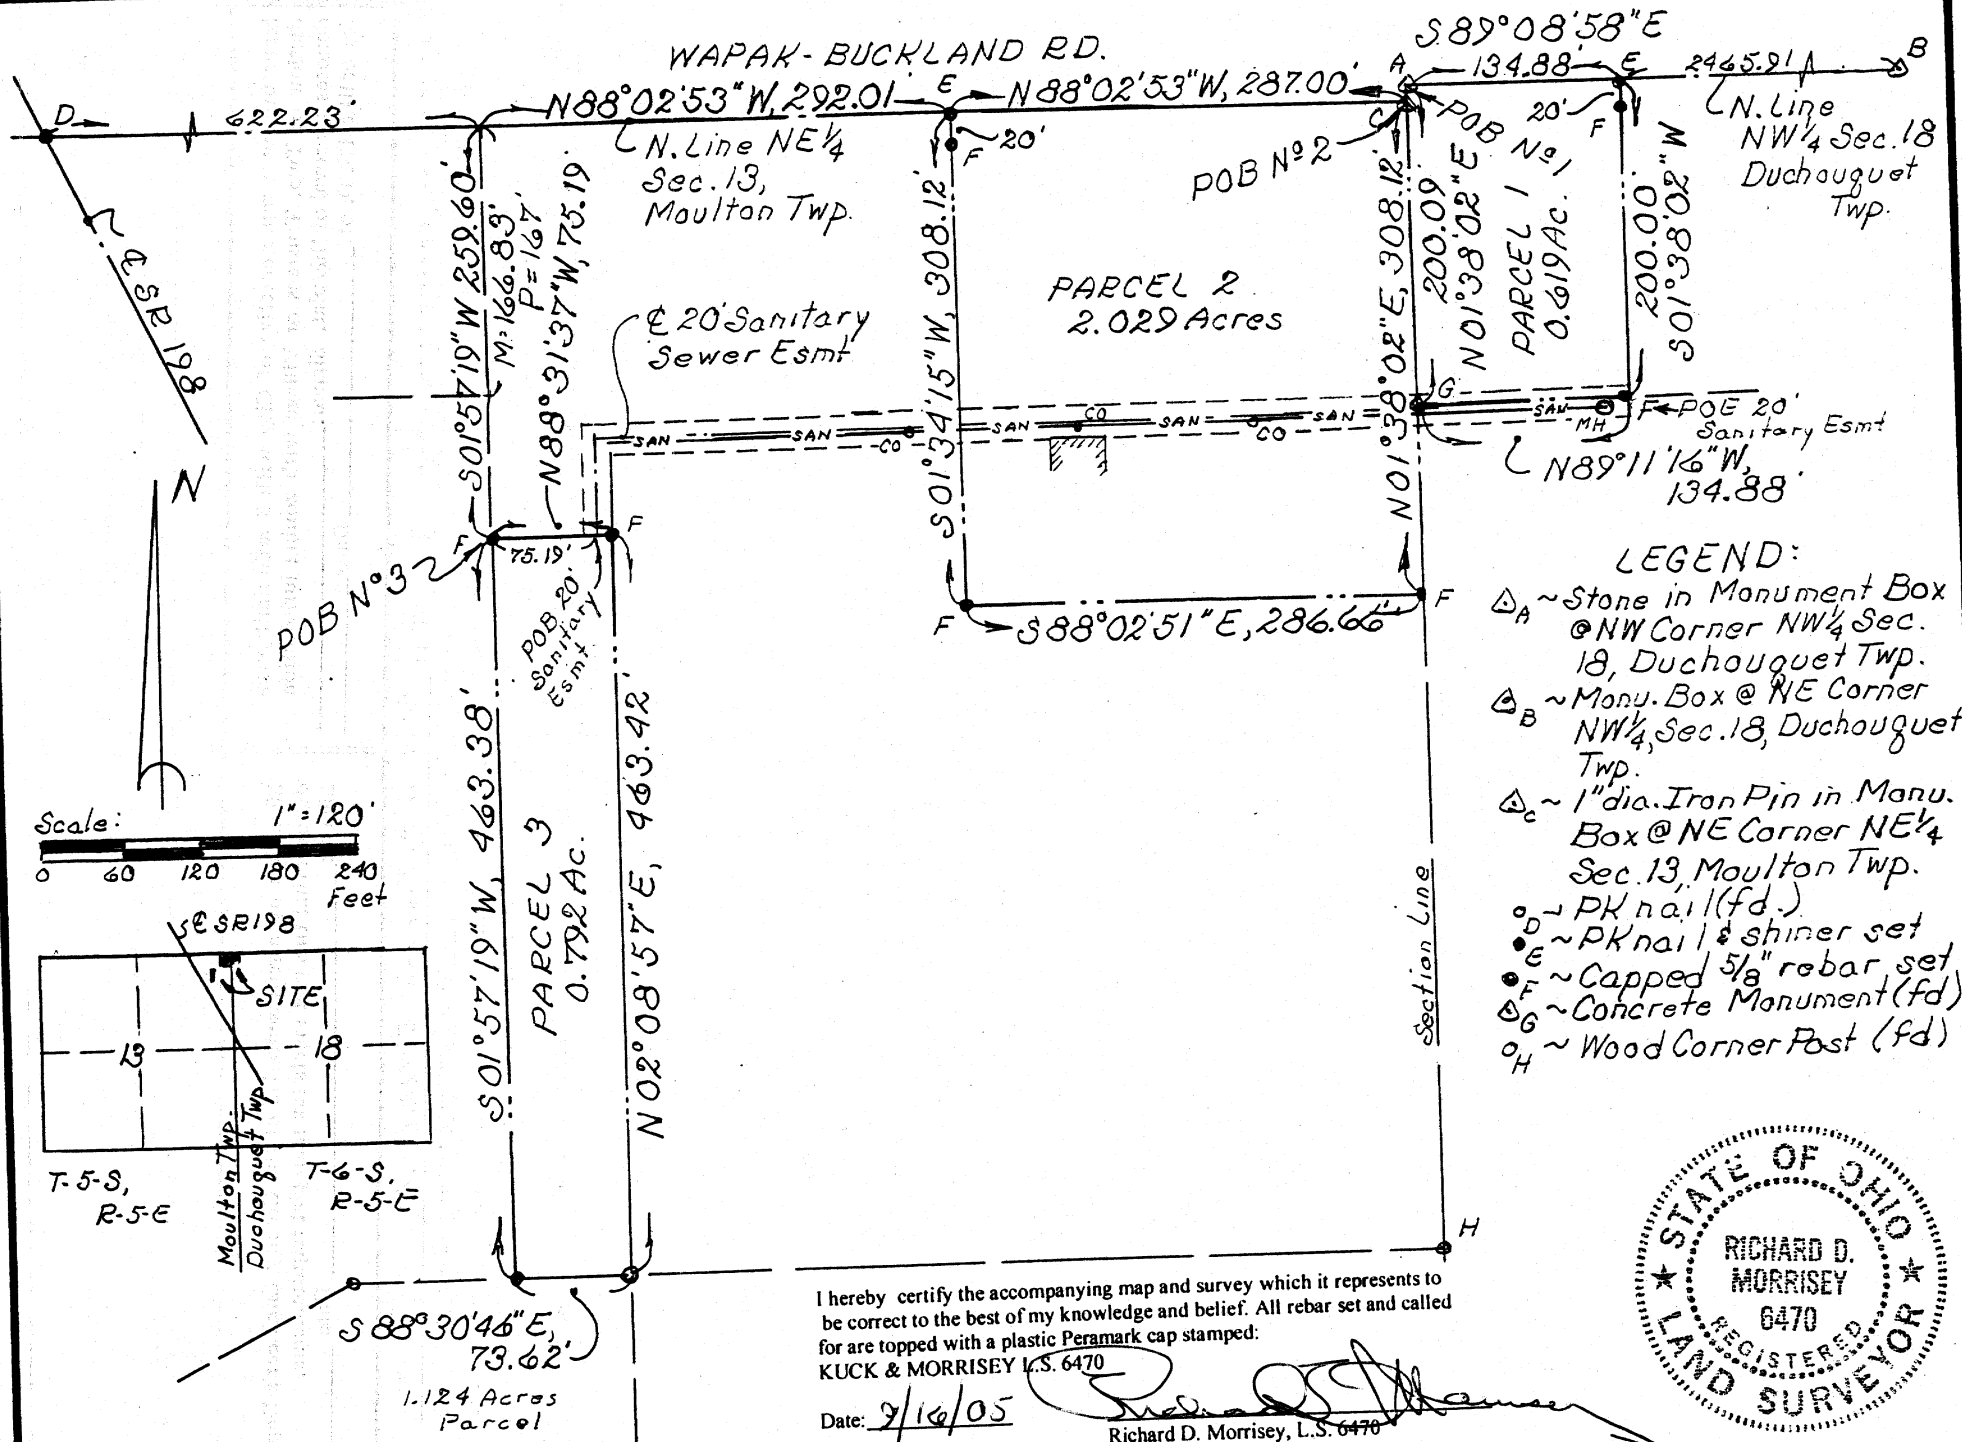 WAPAK-BUCKLAND RD.
S89°08'58"E
134.88'
2465.91'
A
E
B
D
622.23'
N88°02'53"W, 292.01'
E
N88°02'53"W, 287.00'
C
N. Line NE 1/4
Sec. 13,
Moulton Twp.
20'
F
POB Nº 2
POB Nº 1
20'
F
N. Line
NW 1/4 Sec. 18
Duchouquet
Twp.
℄ SR 198
S01°57'19"W 259.60'
M=166.83'
P=167'
N88°31'37"W, 75.19'
℄ 20' Sanitary
Sewer Esmt
S01°34'15"W, 308.12'
PARCEL 2
2.029 Acres
N01°38'02"E, 308.12'
200.09'
N01°38'02"E
PARCEL 1
0.619 Ac.
200.00'
S01°38'02"W
G
SAN
SAN
CO
SAN
CO
SAN
CO
SAN
SAN
MH
F
POE 20'
Sanitary Esmt
N89°11'16"W,
134.88'
N
F
75.19'
F
POB Nº 3
POB 20'
Sanitary
Esmt
F
S88°02'51"E, 286.66'
F
LEGEND:
A ~ Stone in Monument Box
@ NW Corner NW 1/4 Sec.
18, Duchouquet Twp.
B ~ Monu. Box @ NE Corner
NW 1/4, Sec. 18, Duchouquet
Twp.
C ~ 1" dia. Iron Pin in Monu.
Box @ NE Corner NE 1/4
Sec. 13, Moulton Twp.
D ~ PK nail (fd.)
E ~ PK nail & shiner set
F ~ Capped 5/8" rebar set
G ~ Concrete Monument (fd)
H ~ Wood Corner Post (fd)
S01°57'19"W, 463.38'
PARCEL 3
0.792 Ac.
N02°08'57"E, 463.42'
Section Line
H
Scale: 1"=120'
0 60 120 180 240
Feet
℄ SR198
SITE
13
18
T-5-S,
R-5-E
Moulton Twp.
Duchouquet Twp
T-6-S,
R-5-E
S88°30'46"E,
73.62'
1.124 Acres
Parcel
I hereby certify the accompanying map and survey which it represents to
be correct to the best of my knowledge and belief. All rebar set and called
for are topped with a plastic Peramark cap stamped:
KUCK & MORRISEY L.S. 6470
Date: 9/16/05
Richard D. Morrisey, L.S. 6470
STATE OF OHIO
RICHARD D.
MORRISEY
6470
REGISTERED
LAND SURVEYOR